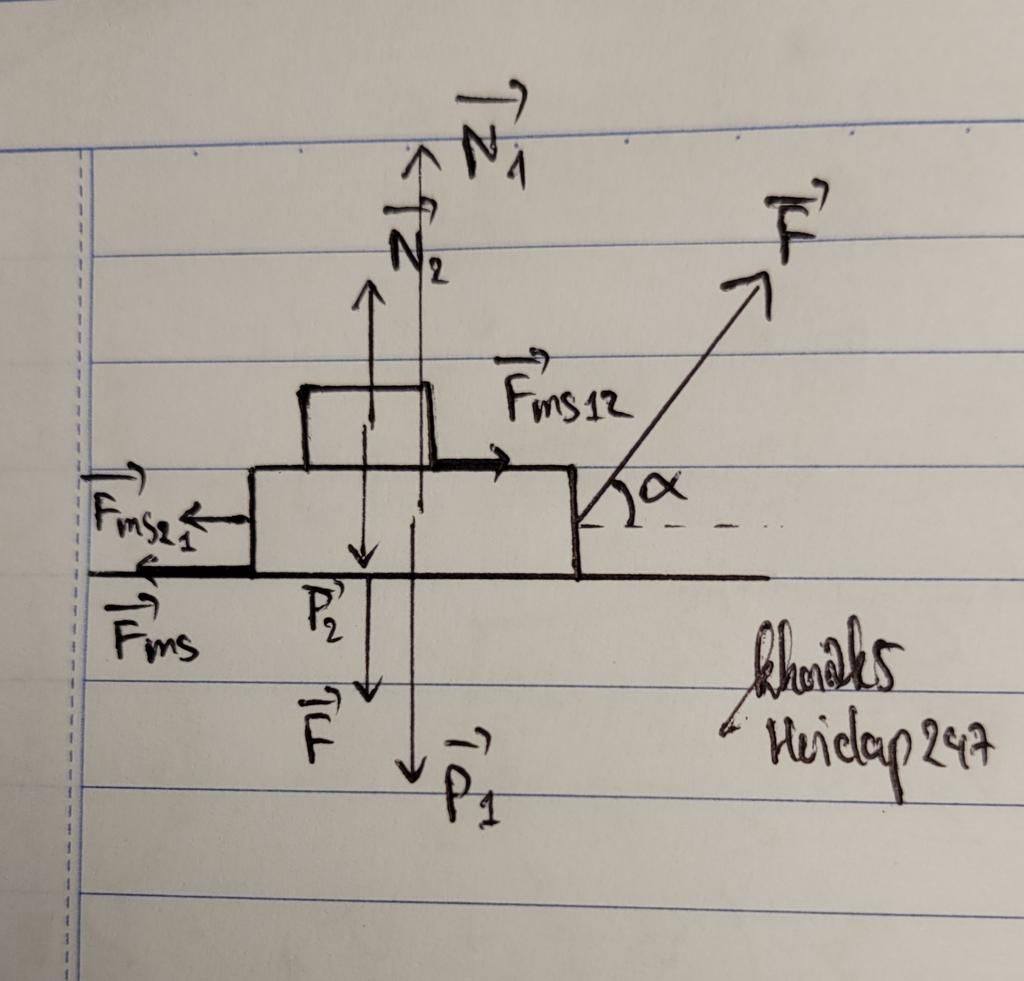 N₁
N₂
F
Fms12
α
Fms21
Fms
P₂
F
P₁
Hoidap247